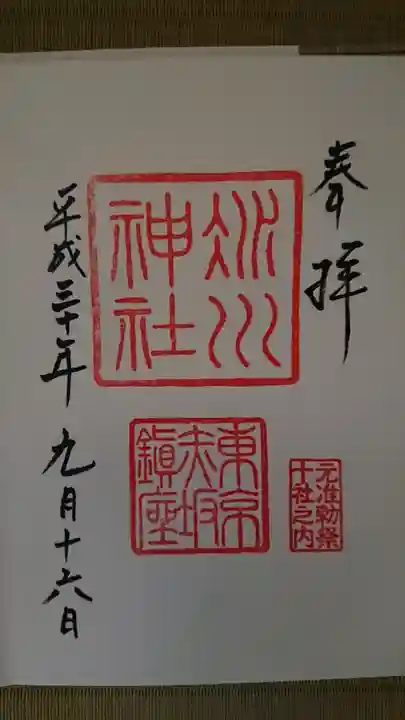 奉拝
氷川
神社
東京
赤坂
鎮座
元准勅祭
十社之内
平成三十年九月十六日